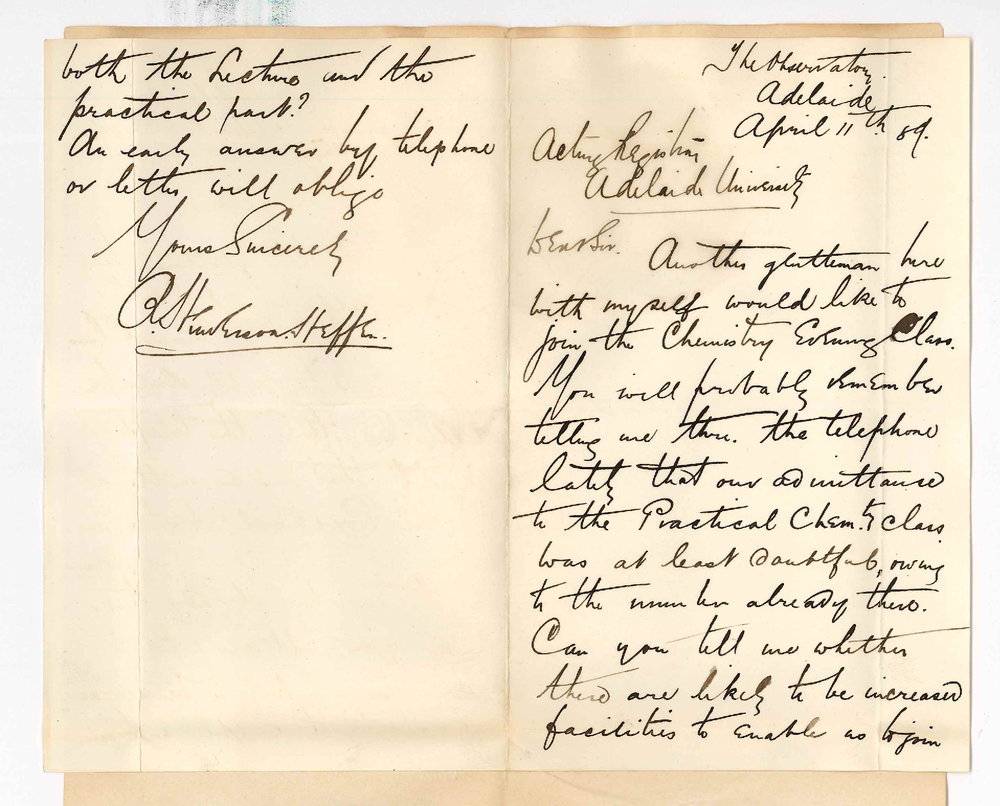 The Observatory.
Adelaide
April 11th 89.
Acting Registrar
Adelaide University
Dear Sir.
Another gentleman here
with myself would like to
join the Chemistry Evening Class.
You will probably remember
telling me thro. the telephone
lately that our admittance
to the Practical Chem.ty class
was at least doubtful, owing
to the number already there.
Can you tell me whether
there are likely to be increased
facilities to enable us to join
both the Lecture and the
practical part?
An early answer by telephone
or letter will oblige
Yours Sincerely
Henderson.